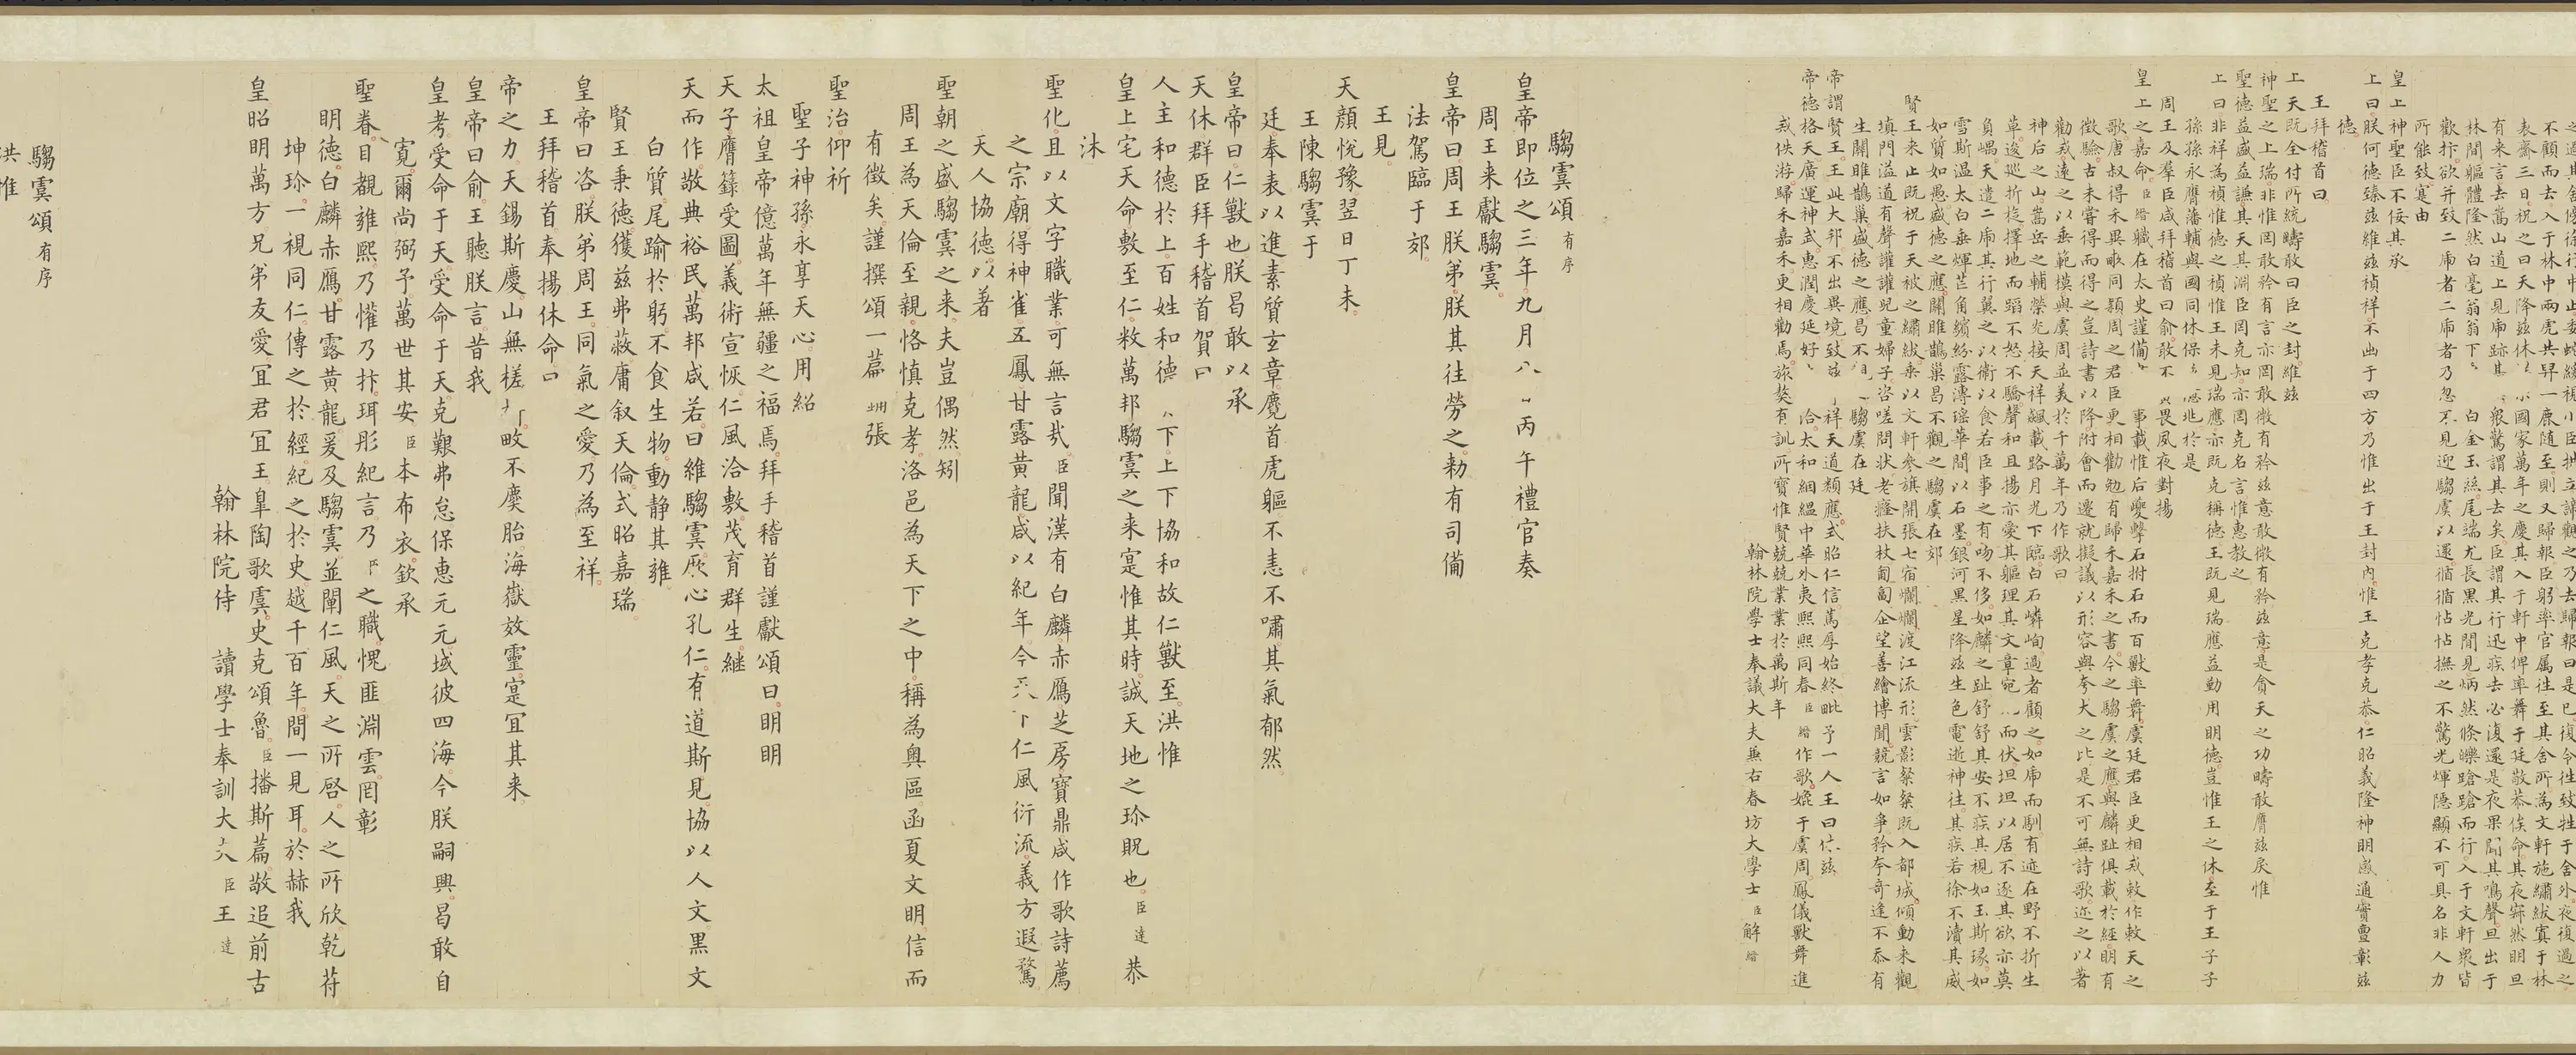 不顧而去入于林中兩虎共舁一鹿隨至則又歸報臣躬率官属往至其舍所為文軒施繡紱寘于林
表齋三日祝之曰天降兹休國家萬年之慶其入于軒中俾率舞于廷敬恭俟命其夜寂然明旦
有来言去嵩山道上見虎跡其衆驚謂其去矣臣謂其行迅疾去必復還是夜果聞其鳴聲旦出于
林間軀體隆然白毫翁翁下白金玉絲尾端尤長黒光閒見炳然倏皪蹌蹌而行入于文軒衆皆
歡抃欲并致二虎者二虎者乃忽不見迎騶虞以還循循怗怗撫之不驚光煇隱顯不可具名非人力
所能致寔由
皇上神聖臣不佞其承
上曰朕何德臻兹維兹禎祥不幽于四方乃惟出于王封内惟王克孝克恭仁昭義隆神明感通實亶彰兹
德
王拜稽首曰
上天既全付所統疇敢曰臣之封維兹
神聖之上瑞非惟罔敢矜有言亦罔敢徴有矜兹意敢徴有矜兹意是貪天之功疇敢膺兹戾惟
聖德益益盛益謙其天其淵臣罔克知亦罔克名言惟惠教之
上曰非祥為禎惟德之禎惟王未見瑞應亦既克稱德王既見瑞應益勤用明德豈惟王之休至于王子子
孫孫永膺藩輔與國同休保兆於是
周王及羣臣咸拜稽首曰俞敢不畏風夜對揚
皇上之嘉命臣縉職在太史謹備事載惟后夔擊石拊石而百獸率舞虞廷君臣更相戒敕作敕天之
歌唐叔得禾異畝同穎周之君臣更相勸勉有歸禾嘉禾之書今之騶虞之應與麟趾俱載於經明有
徴驗古未嘗得而得之豈詩書以降附會而遷就擬議以形容與夸大之比是不可無詩歌迩之以著
勸戒遠之以垂範模與虞周並美於千萬年乃作歌曰
神后之山嵩岳之輔榮光接天祥飈載路月光下臨白石嶙峋過者顧之如虎而馴有迹在野不折生
草逡巡折旋擇地而蹈不怒不驕聲和且揚亦愛其軀理其文章宛而伏坦坦以居不逐其欲亦莫
負嵎天遣二虎其行翼之以衛以食若臣事之有吻不侈如麟之趾舒舒其安不疾其視如玉斯琢如
雪斯温太白垂煇芒角繽紛露漙瑶華間以石墨銀河黒星降兹生色電逝神往其疾若徐不瀆其威
如質如愚盛德之應關雎鵲巢曷不觀之騶虞在郊
賢王来止既祝于天被之繡紱乗以文軒參旗開張七宿爛爛渡江流形雲影粲粲既入都城傾動来觀
填門溢道有聲讙讙兒童婦子咨嗟問状老癃扶杖匍匐企望善繪博聞競言如爭矜夸奇逢不忝有
生關雎鵲巢盛德之應曷不騶虞在廷
帝謂賢王王此大邦不出異境致兹祥天道類應式昭仁信篤厚始終毗予一人王曰休兹
帝德格天廣運神武惠潤慶延好洽太和絪緼中華外夷熙熙同春臣縉作歌媲于虞周鳳儀獸舞進
戒佚游歸禾嘉禾更相勸焉旅獒有訓所寶惟賢兢兢業業於萬斯年
翰林院學士奉議大夫兼右春坊大學士臣解縉
騶虞頌有序
皇帝即位之三年九月八日丙午禮官奏
周王来獻騶虞
皇帝曰周王朕弟朕其往勞之勅有司備
法駕臨于郊
王見
天顔悅豫翌日丁未
王陳騶虞于
廷奉表以進素質玄章麑首虎軀不恚不嘯其氣郁然
皇帝曰仁獸也朕曷敢以承
天休群臣拜手稽首賀曰
人主和德於上百姓和德下上下協和故仁獸至洪惟
皇上宅天命敷至仁敉萬邦騶虞之来寔惟其時誠天地之珎貺也臣達恭
沐
聖化且以文字職業可無言㢤臣聞漢有白麟赤鴈芝房寶鼎咸作歌詩薦
之宗廟得神雀五鳳甘露黄龍咸以紀年今天下仁風衍流義方遐騖
天人協德以著
聖朝之盛騶虞之来夫豈偶然矧
周王為天倫至親恪慎克孝洛邑為天下之中稱為奥區函夏文明信而
有徴矣謹撰頌一篇張
聖治仰祈
聖子神孫永享天心用紹
太祖皇帝億萬年無疆之福焉拜手稽首謹獻頌曰明明
天子膺籙受圖義術宣恢仁風洽敷茂育群生継
天而作敬典裕民萬邦咸若曰維騶虞厥心孔仁有道斯見協以人文黒文
白質尾踰於躬不食生物動静其雍
賢王秉德獲兹弗蔽庸叙天倫式昭嘉瑞
皇帝曰咨朕弟周王同氣之愛乃為至祥
王拜稽首奉揚休命曰
帝之力天錫斯慶山無槎畋不麌胎海嶽效靈寔冝其来
皇帝曰俞王聽朕言昔我
皇考受命于天受命于天克艱弗怠保恵元元域彼四海今朕嗣興曷敢自
寛爾尚弼予萬世其安臣本布衣欽承
聖眷目覩雍熙乃懽乃抃珥彤紀言乃之職愧匪淵雲罔彰
明德白麟赤鴈甘露黄龍爰及騶虞並闡仁風天之所啓人之所欣乾苻
坤珎一視同仁傳之於經紀之於史越千百年間一見耳於赫我
皇昭明萬方兄弟友愛冝君冝王皐陶歌虞史克頌魯臣播斯篇敬追前古
翰林院侍讀學士奉訓大夫臣王達
騶虞頌有序
洪惟